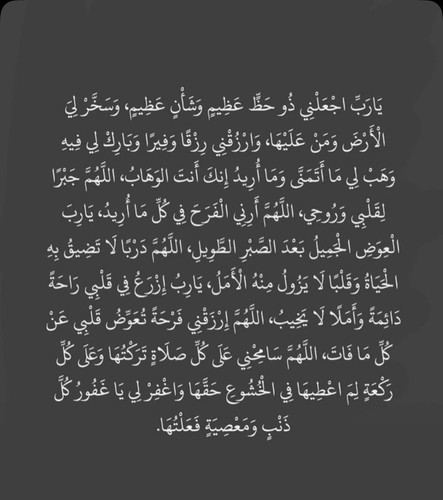 يَارَبِّ اجْعَلْنِي ذُو حَظٍّ عَظِيمٍ وَشَأْنٍ عَظِيمٍ، وَسَخَّرْ لِيَ
الْأَرْضَ وَمَنْ عَلَيْهَا، وَارْزُقْنِي رِزْقًا وَفِيرًا وَبَارِكْ لِي فِيهِ
وَهَبْ لِي مَا أَتَمَنَّى وَمَا أُرِيدُ إِنكَ أَنتَ الوَهَابُ، اللَّهُمَّ جَبْرًا
لِقَلْبِي وَرُوحِي، اللَّهُمَّ أَرِنِي الْفَرَحَ فِي كُلِّ مَا أُرِيدُ، يَارِبَ
الْعِوَضِ الْجَمِيلُ بَعْدَ الصَّبْرِ الطَّوِيلِ، اللَّهُمَّ دَرْبًا لَا تَضِيقُ بِهِ
الْحَيَاةُ وَقَلْبًا لَا يَزُولُ مِنْهُ الْأَمَلُ، يَارِبُ إِزْرَعُ فِي قَلْبِي رَاحَةً
دَائِمَةً وَأَمَلًا لَا يَخِيبُ، اللَّهُمَّ إِرْزَقْنِي فَرْحَةً تُعَوِّضُ قَلْبِي عَنْ
كُلِّ مَا فَاتَ، اللَّهُمَّ سَامِحْنِي عَلَى كُلِّ صَلَاةٍ تَرَكْتُهَا وَعَلَى كُلِّ
رَكْعَةٍ لِمَ اعْطِيهَا فِي الْخُشُوعِ حَقَّهَا وَاغْفِرْ لِي يَا غَفُورُ كُلَّ
ذَنْبٍ وَمَعْصِيَةٍ فَعَلْتُهَا.